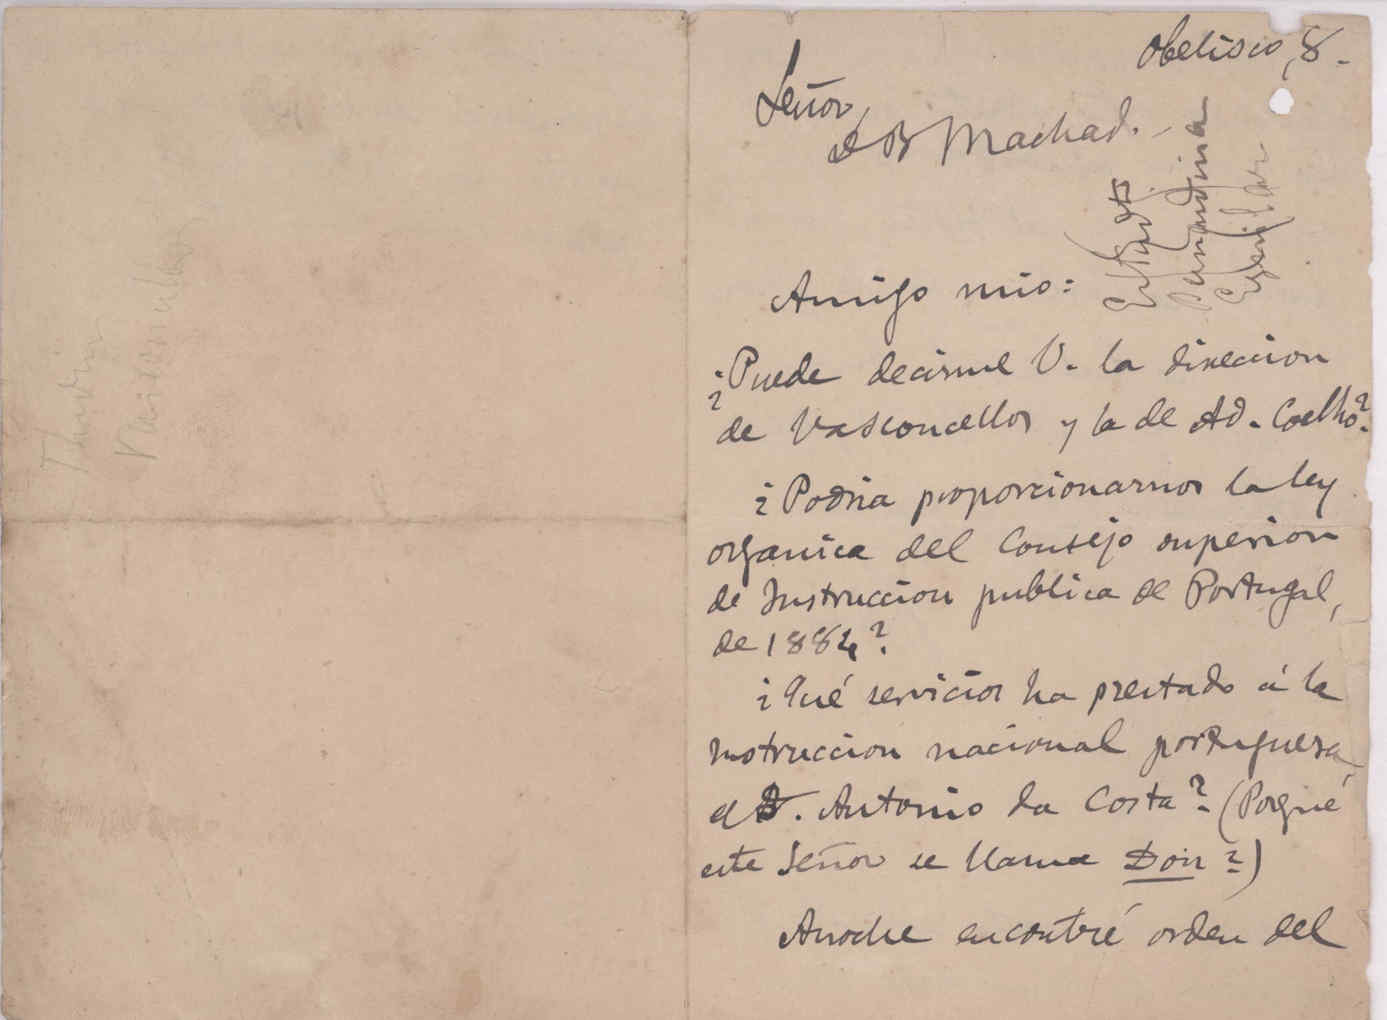 Obelisco, 8.
Señor
D B Machado.
Amigo mio:
¿Puede decirme V. la direccion
de Vasconcellos y la de Ad. Coelho?
¿Podria proporcionarnos la ley
organica del Consejo superior
de Instruccion publica de Portugal,
de 1884?
¿Qué servicios ha prestado á la
instruccion nacional portuguesa,
el D. Antonio da Costa? (Porqué
este Señor se llama Don?)
Anoche encontré orden del